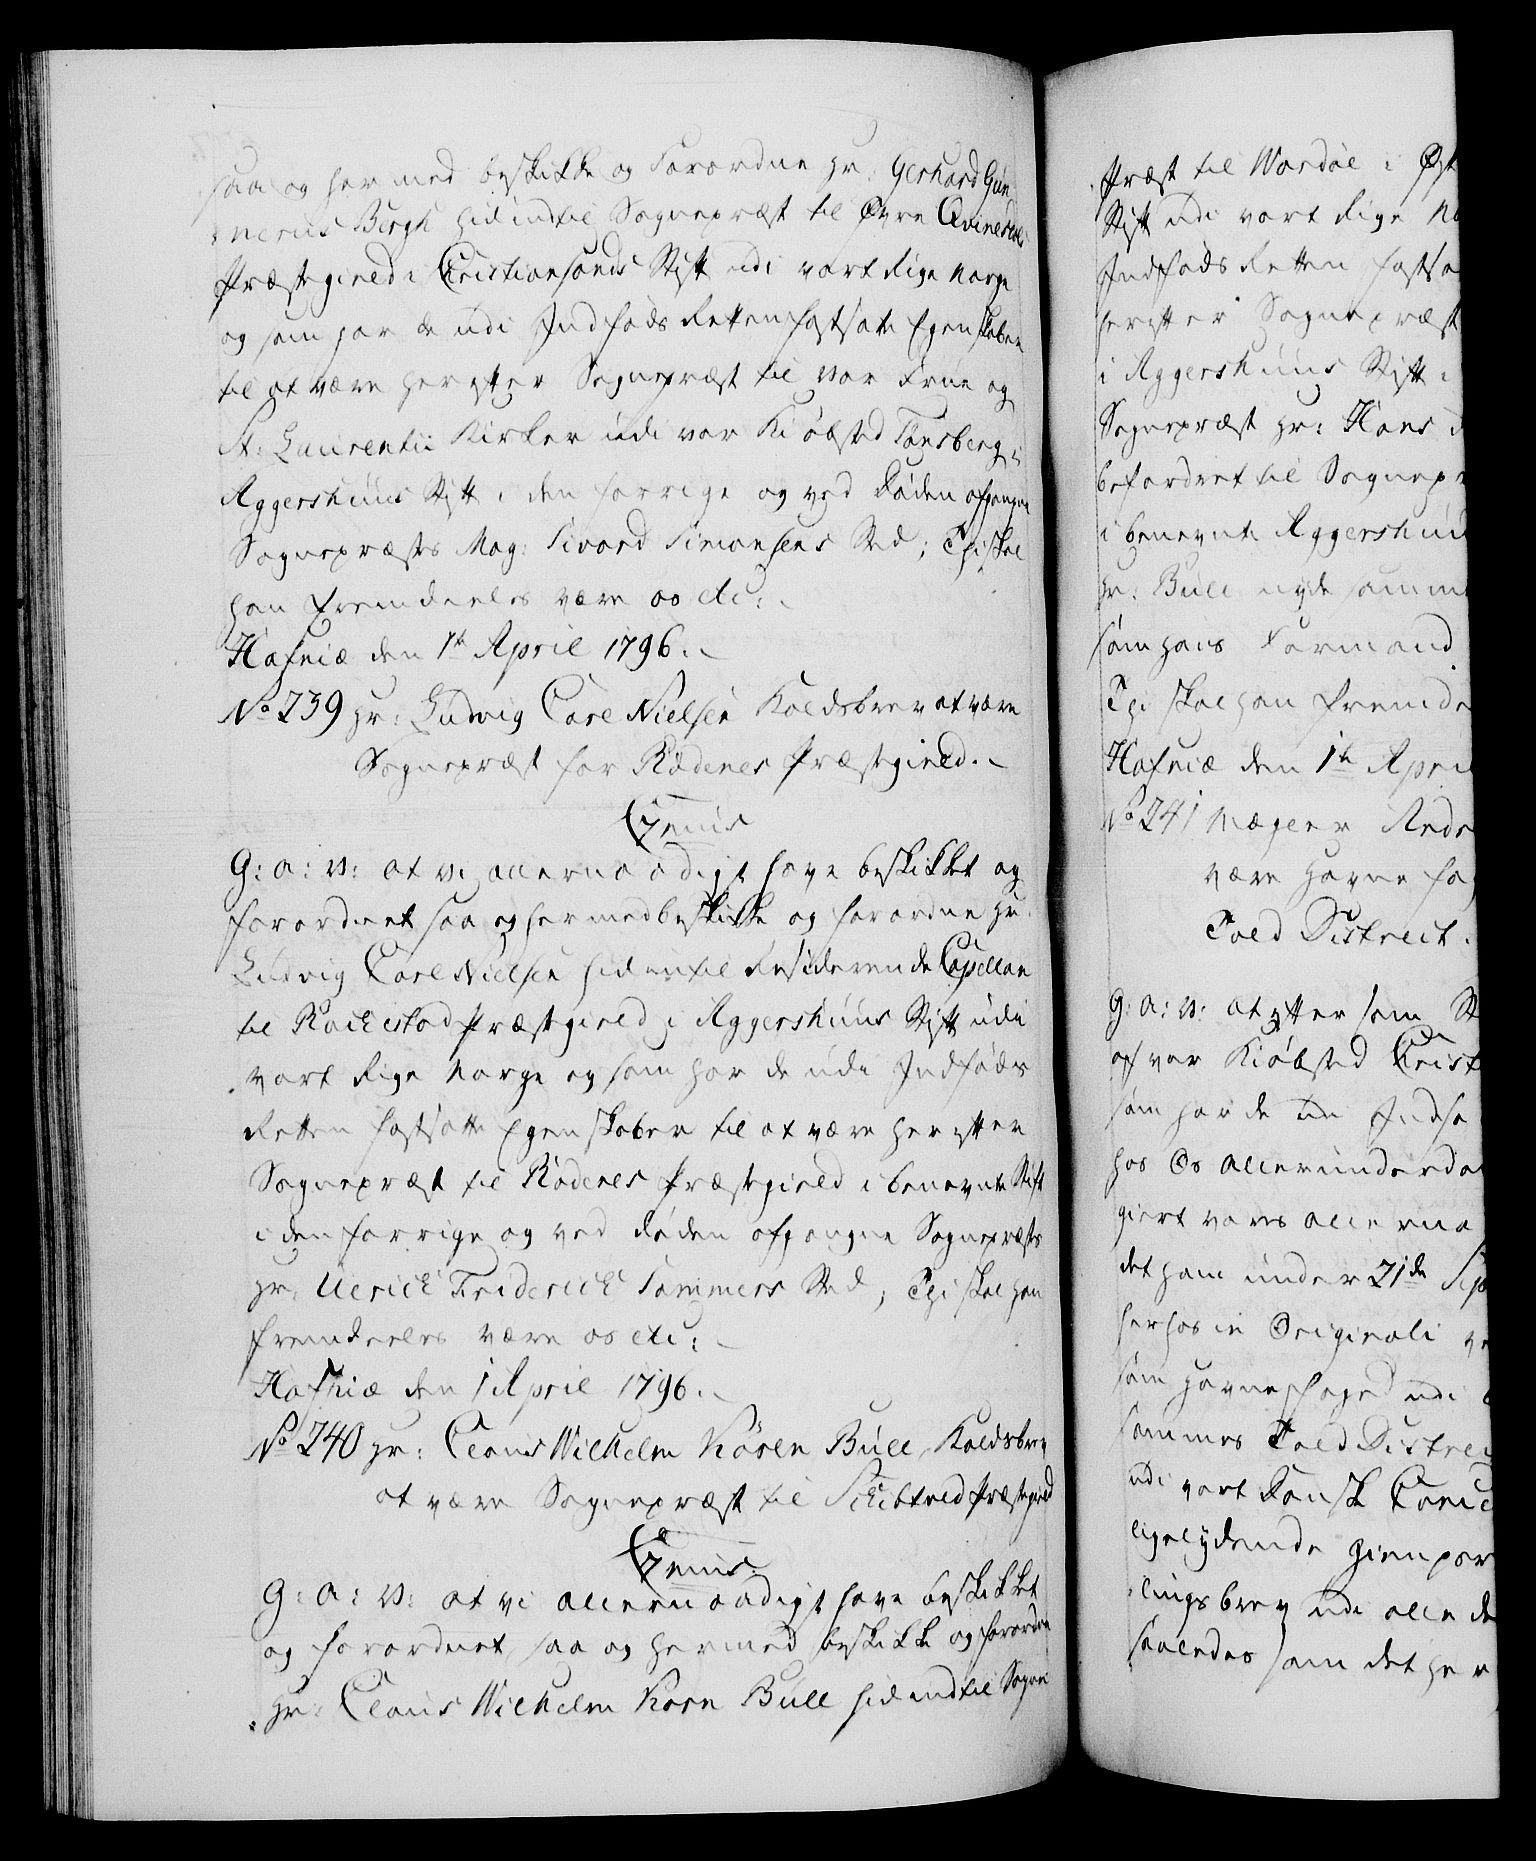 saa og hermed beskikke og Forordne Hr: Gerhard Gun
nerus Bergh hidindtil Sognepræst til Øvre Qvinesdals
Præstegield i Christiansands Stift udi vort Rige Norge
og som har de udi Indføds Retten fastsatte Egenskaber
til at være herefter Sognepræst til Vor Frue og
St: Laurentii Kirker udi vor Kiøbsted Tønsberg i
Aggershuus Stift i den forrige og ved Døden afgangne
Sognepræsts Mag: Sivard Simonsens Sted; Thi skal
han fremdeeles være os etc:
Hafniæ den 1te April 1796.
No 239 Hr: Ludvig Carl Nielsen Kaldsbrev at være
Sognepræst for Rødenes Præstegield.
C7enus
G: A: V: at vi allernaadigst have beskikket og
forordnet saa og hermed beskikke og forordne Hr.
Ludvig Carl Nielsen hidindtil Residerende Capellan
til Rackestad Præstegield i Aggershuus Stift udi
vort Rige Norge og som har de udi Indføds
Retten fastsatte Egenskaber til at være herefter
Sognepræst til Rødenes Præstegield i benevnte Stift
i den forrige og ved Døden afgangne Sognepræsts
Hr. Ulrich Friderich Sommers Sted; Thi skal han
fremdeeles være os etc:
Hafniæ den 1 April 1796.
No 240 Hr: Claus Wilhelm Kören Bull, Kaldsbrev
at være Sognepræst til Schibtved Præstegield
C7enus.
G: A: V: at vi allernaadigst have beskikket
og forordnet saa og hermed beskikke og forordne
Hr: Claus Wilhelm Korn Bull hidindtil Sogne
Præst til Wardöe i
Stift udi vort Rige
Indføds Retten fastsa
herefter Sognepræst
i Aggershuus Stift i
Sognepræst Hr: Hans
befordret til Sognep
i benevnte Aggershuu
Hr: Bull nyde samme
som hans Formand
Thi skal han fremde
Hafniæ den 1te Apri
No 241 Mægler
være Havne fo
Told District.
G: A: V: at efter som
af vor Kiøbsted Christ
som har de udi Indfø
hos Os allerunderda
giort vores allerna
det ham under 21de Sep
herhos in Originali
som Havnefoged udi
sammes Told Distric
udi vort Dansk Cancel
ligelydende Gienpar
lingsbrev udi alle de
saaledes som det her